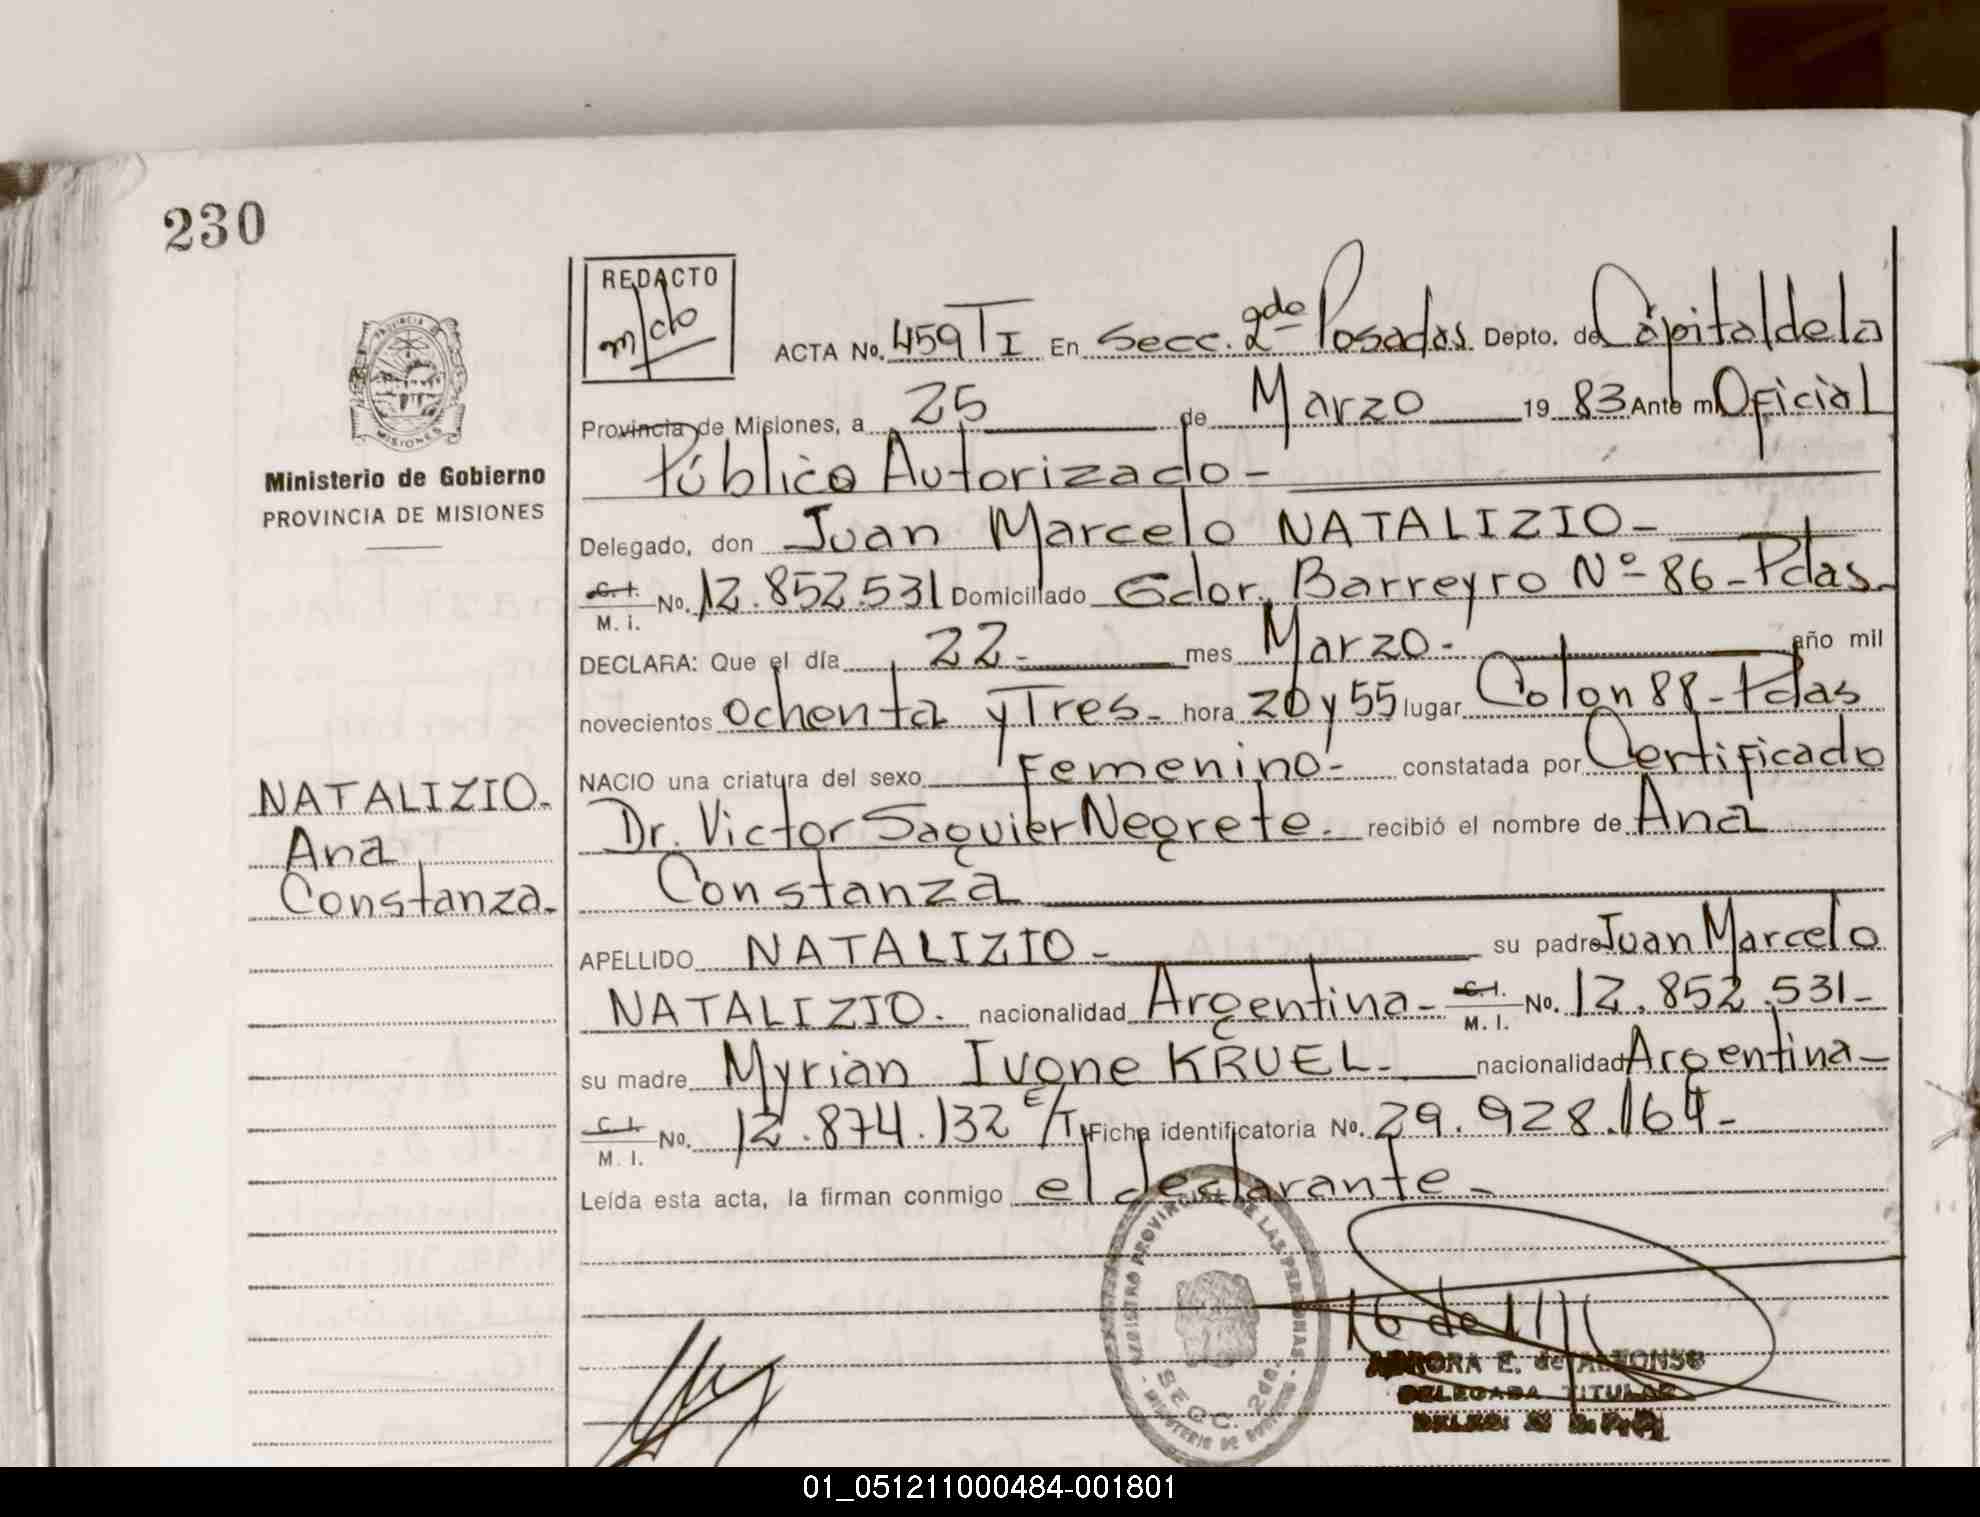 230
REDACTO
ACTA No. 459 TI En Secc. 2da Posadas Depto. de Capital de la
Provincia de Misiones, a 25 de Marzo 19 83 Ante mi Oficial
Público Autorizado -
Ministerio de Gobierno
PROVINCIA DE MISIONES
Delegado, don Juan Marcelo NATALIZIO -
C. I. / M. i. No. 12.852.531 Domiciliado Gdor. Barreyro Nº 86 - Pdas -
DECLARA: Que el día 22 - mes Marzo - año mil
novecientos ochenta y Tres - hora 20 y 55 lugar Colon 88 - Pdas
NACIO una criatura del sexo Femenino - constatada por Certificado
NATALIZIO -
Ana
Constanza -
Dr. Victor Saguier Negrete - recibió el nombre de Ana
Constanza
APELLIDO NATALIZIO - su padre Juan Marcelo
NATALIZIO - nacionalidad Argentina - C. I. / M. I. No. 12.852.531 -
su madre Myrian Ivone KRUEL - nacionalidad Argentina -
C. I. / M. I. No. 12.874.132 E/T Ficha identificatoria No. 29.928.164 -
Leída esta acta, la firman conmigo el declarante -
REGISTRO PROVINCIAL DE LAS PERSONAS
SECC. 2da.
MINISTERIO DE GOBIERNO
AURORA E. de ALFONSO
DELEGADA TITULAR
01_051211000484-001801